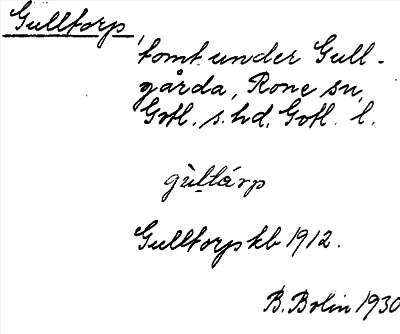 Gulltorp,
tomt under Gull-
gårda, Rone sn,
Gotl. s. hd, Gotl. l.
gùltárp
Gulltorp kb 1912.
B. Bolin 1930